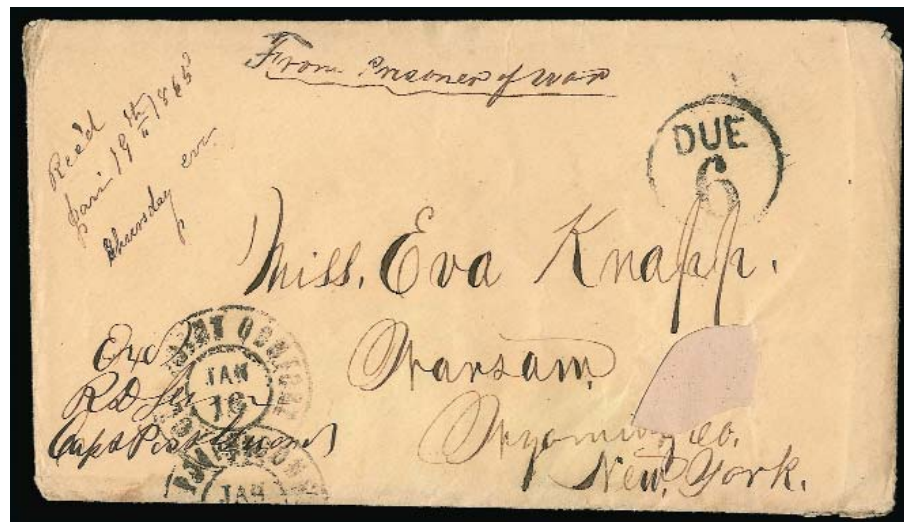 From Prisoner of War
Rec'd
Jan 19th 1865
Thursday eve.
DUE
6
Miss. Eva Knapp.
Warsaw,
Wyoming Co.
New, York.
Exd
R D
Capt
POINT
JAN
16
POINT
JAN